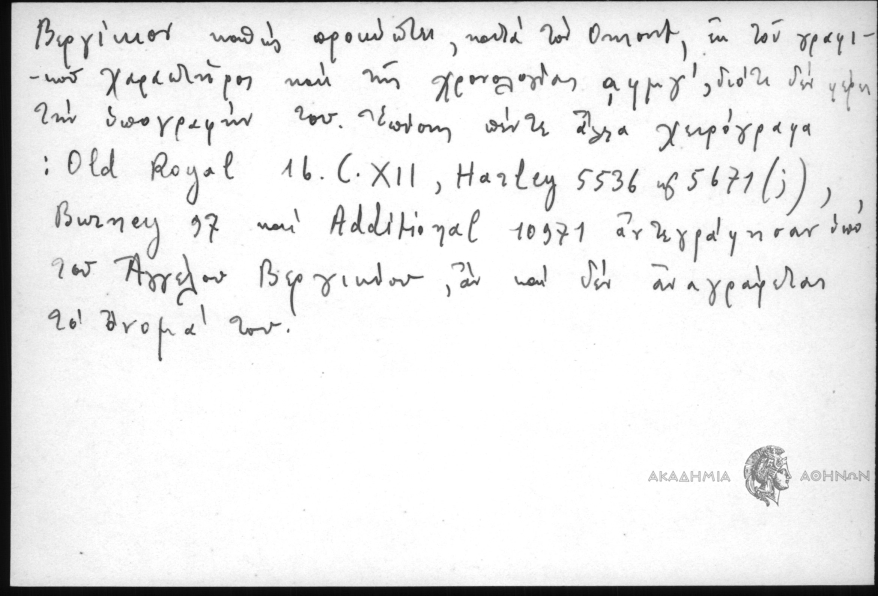 Βεργίκιον καθώς προκύπτει, κατά τον Omont, ἐκ τοῦ γραφι-
-κοῦ χαρακτῆρος καί τῆς χρονολογίας ͵αφμγ', διότι δέν φέρει
τήν ὑπογραφήν του. Ἐπίσης πέντε ἄλλα χειρόγραφα
: Old Royal 16. C. XII, Harley 5536 κ 5671 (j),
Burney 97 καί Additional 10971 ἀντεγράφησαν ὑπό
τοῦ Ἀγγέλου Βεργικίου, ἄν καί δέν ἀναγράφεται
τό ὄνομά του.
ΑΚΑΔΗΜΙΑ ΑΘΗΝΩΝ